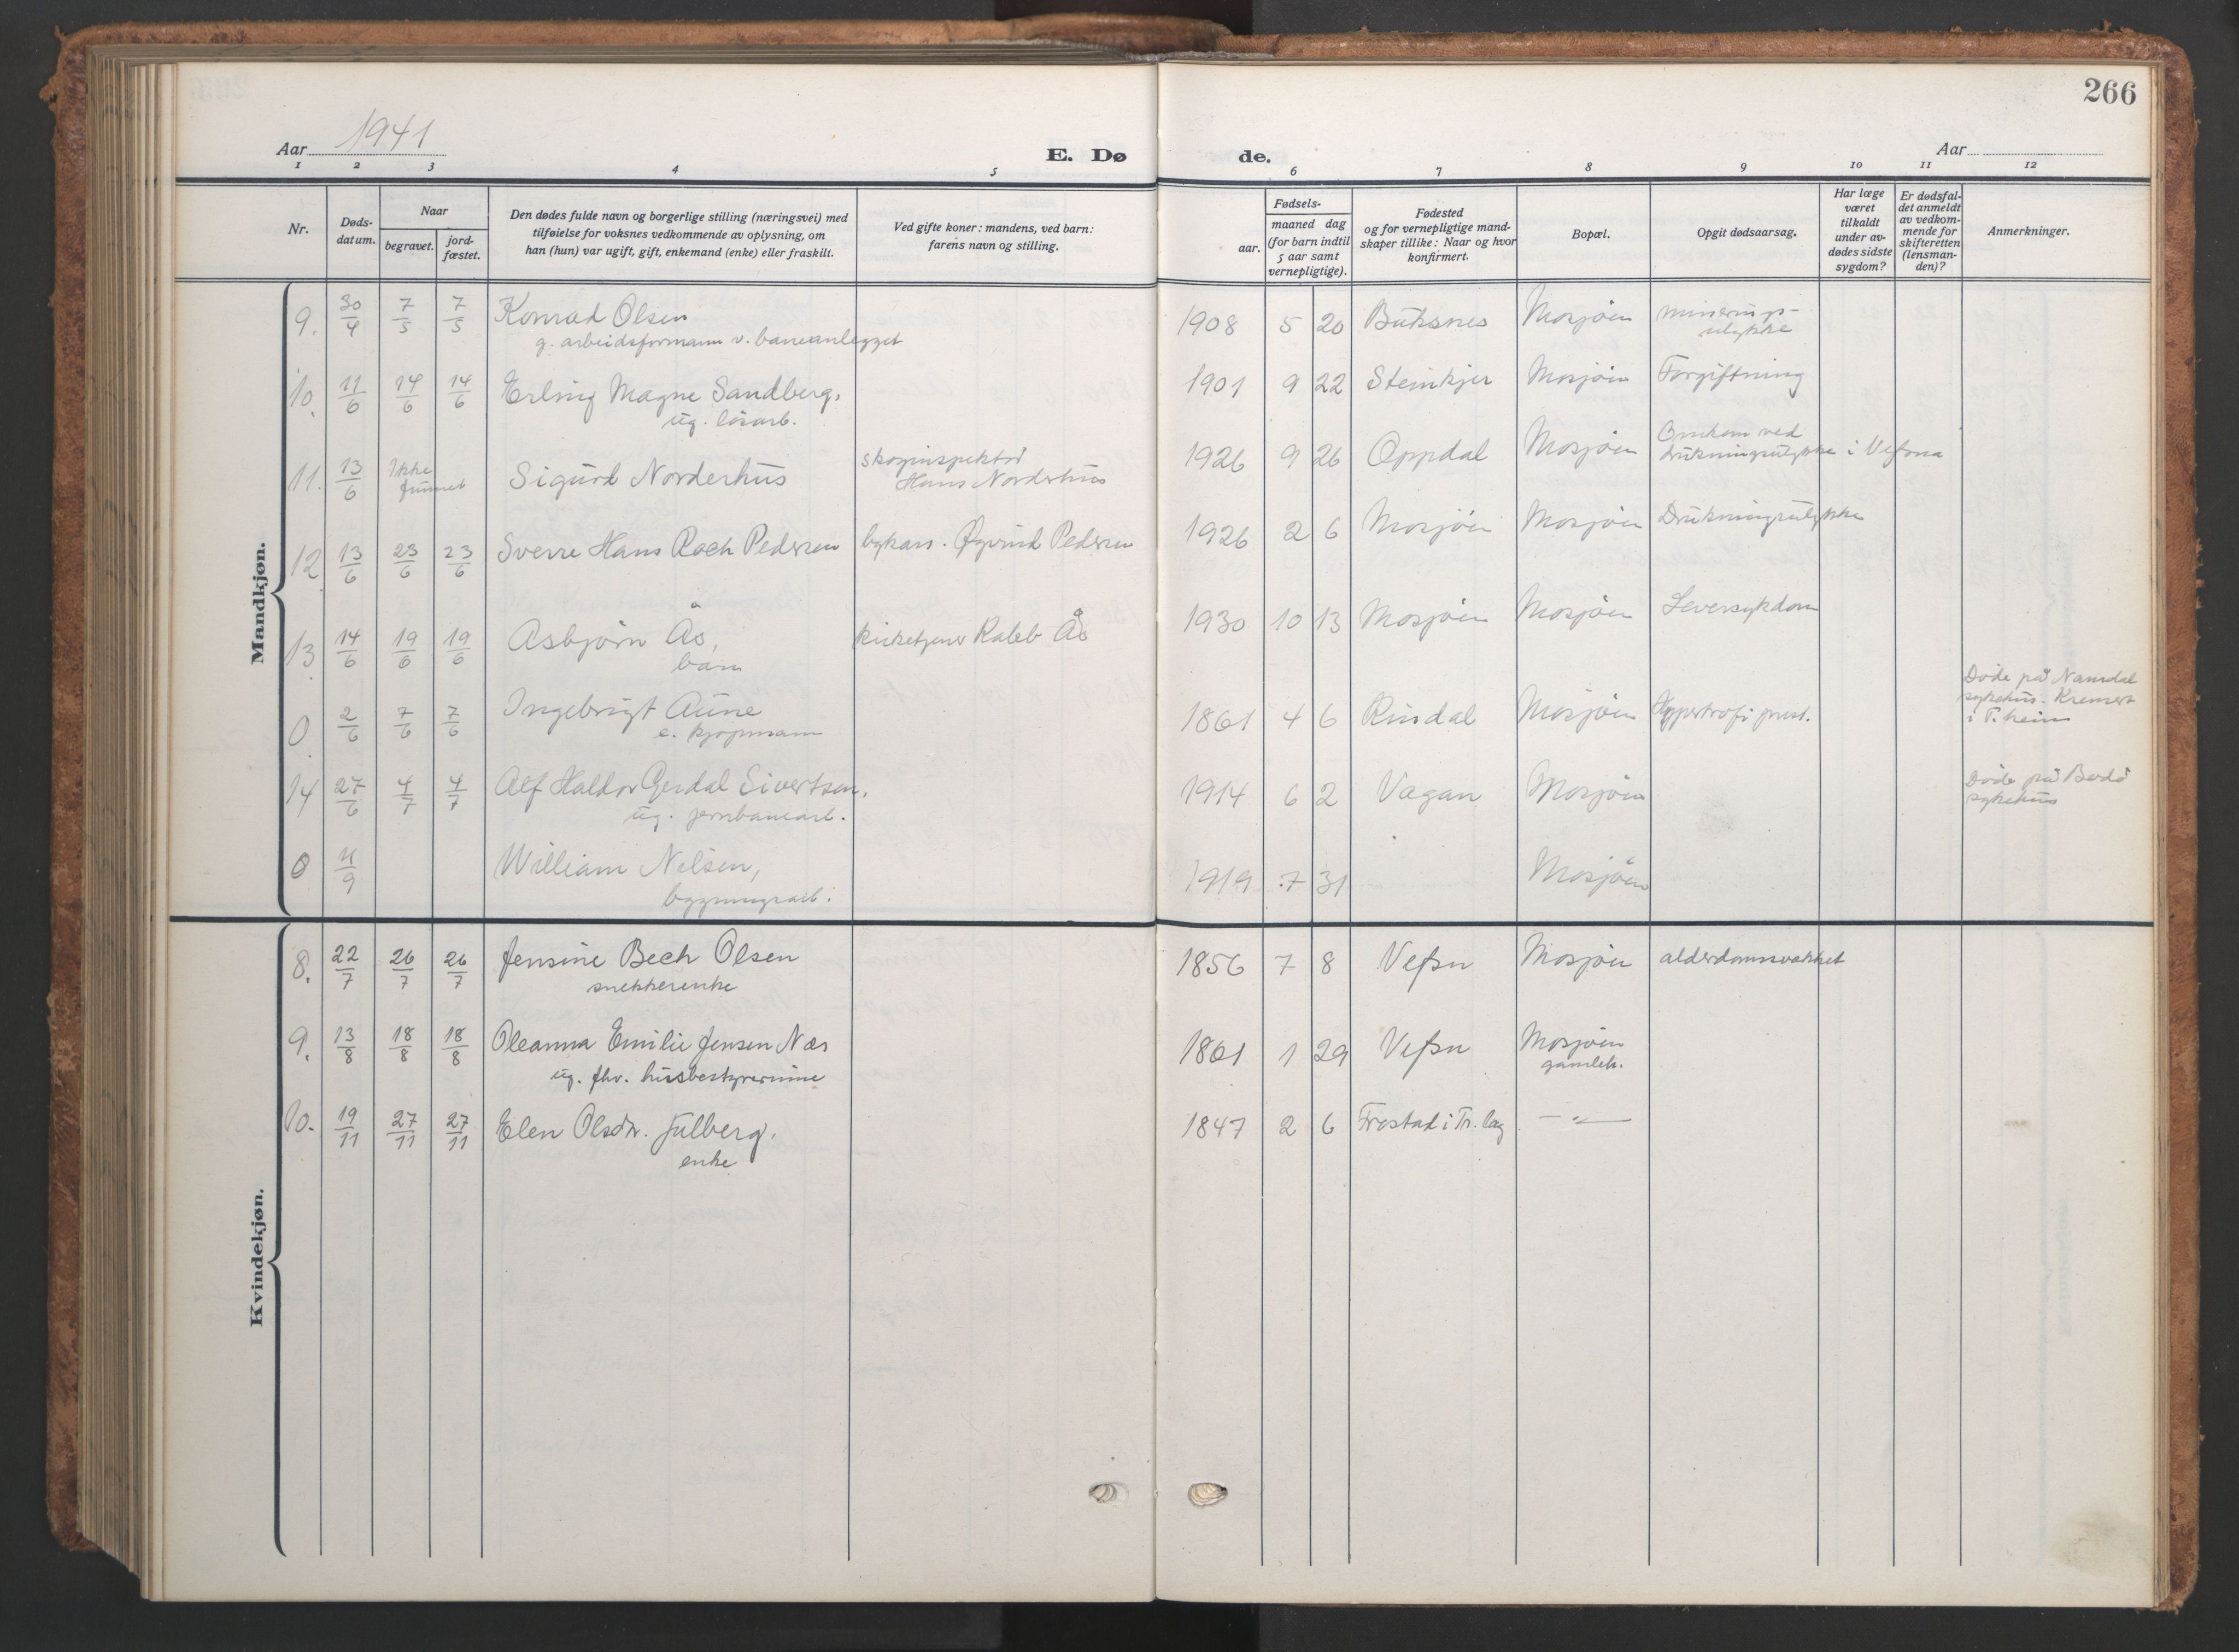 266
Aar 1941
E. Dø de.
Aar
1 2 3 4 5 6 7 8 9 10 11 12
Nr.
Døds-
datum.
Naar
begravet.
jord-
fæstet.
Den dødes fulde navn og borgerlige stilling (næringsvei) med
tilføielse for voksnes vedkommende av oplysning, om
han (hun) var ugift, gift, enkemand (enke) eller fraskilt.
Ved gifte koner: mandens, ved barn:
farens navn og stilling.
Fødsels-
aar.
maaned dag
(for barn indtil
5 aar samt
vernepligtige).
Fødested
og for vernepligtige mand-
skaper tillike: Naar og hvor
konfirmert.
Bopæl.
Opgit dødsaarsag.
Har læge
været
tilkaldt
under av-
dødes sidste
sygdom?
Er dødsfal-
det anmeldt
av vedkom-
mende for
skifteretten
(lensman-
den)?
Anmerkninger.
Mandkjøn.
9. 30/4 7/5 7/5 Konrad Olsen 1908 5 20 Buksnes Mosjøen minerings-
g. arbeidsformann v. baneanlegget ulykke
10. 11/6 14/6 14/6 Erling Magne Sandberg, 1901 9 22 Steinkjer Mosjøen Forgiftning
ug. løsarb.
11. 13/6 Ikke funnet Sigurd Norderhus skoginspektør Hans Norderhus 1926 9 26 Oppdal Mosjøen Omkom ved
drukningsulykke i Vefsna
12 13/6 23/6 23/6 Sverre Hans Roch Pedersen bykass. Øyvind Pedersen 1926 2 6 Mosjøen Mosjøen Drukningsulykke
13. 14/6 19/6 19/6 Asbjørn Ås, kirketjener Kaleb Ås 1930 10 13 Mosjøen Mosjøen Leversykdom
barn
0. 2/6 7/6 7/6 Ingebrigt Aune 1861 4 6 Rindal Mosjøen Hypertrofi prost. Døde på Namdal
e. kjøpmann sykehus. Kremert
i T.heim
14 27/6 4/7 4/7 Alf Haldor Gerdal Sivertsen, 1914 6 2 Vågan Mosjøen Døde på Bodø
ug. jernbanearb. sykehus
0 4/9 William Nilsen, 1919 7 31 Mosjøen
bygningsarb.
Kvindekjøn.
8. 22/7 26/7 26/7 Jensine Bech Olsen 1856 7 8 Vefsn Mosjøen alderdomssvakhet
snekkerenke
9. 13/8 18/8 18/8 Oleanna Emilie Jensen Næs 1861 1 29 Vefsn Mosjøen
ug. fhv. husbestyrerinne gamleh.
10. 19/11 27/11 27/11 Elen Olsdtr. Fulberg, 1847 2 6 Frostad i Tr. lag —"—
enke